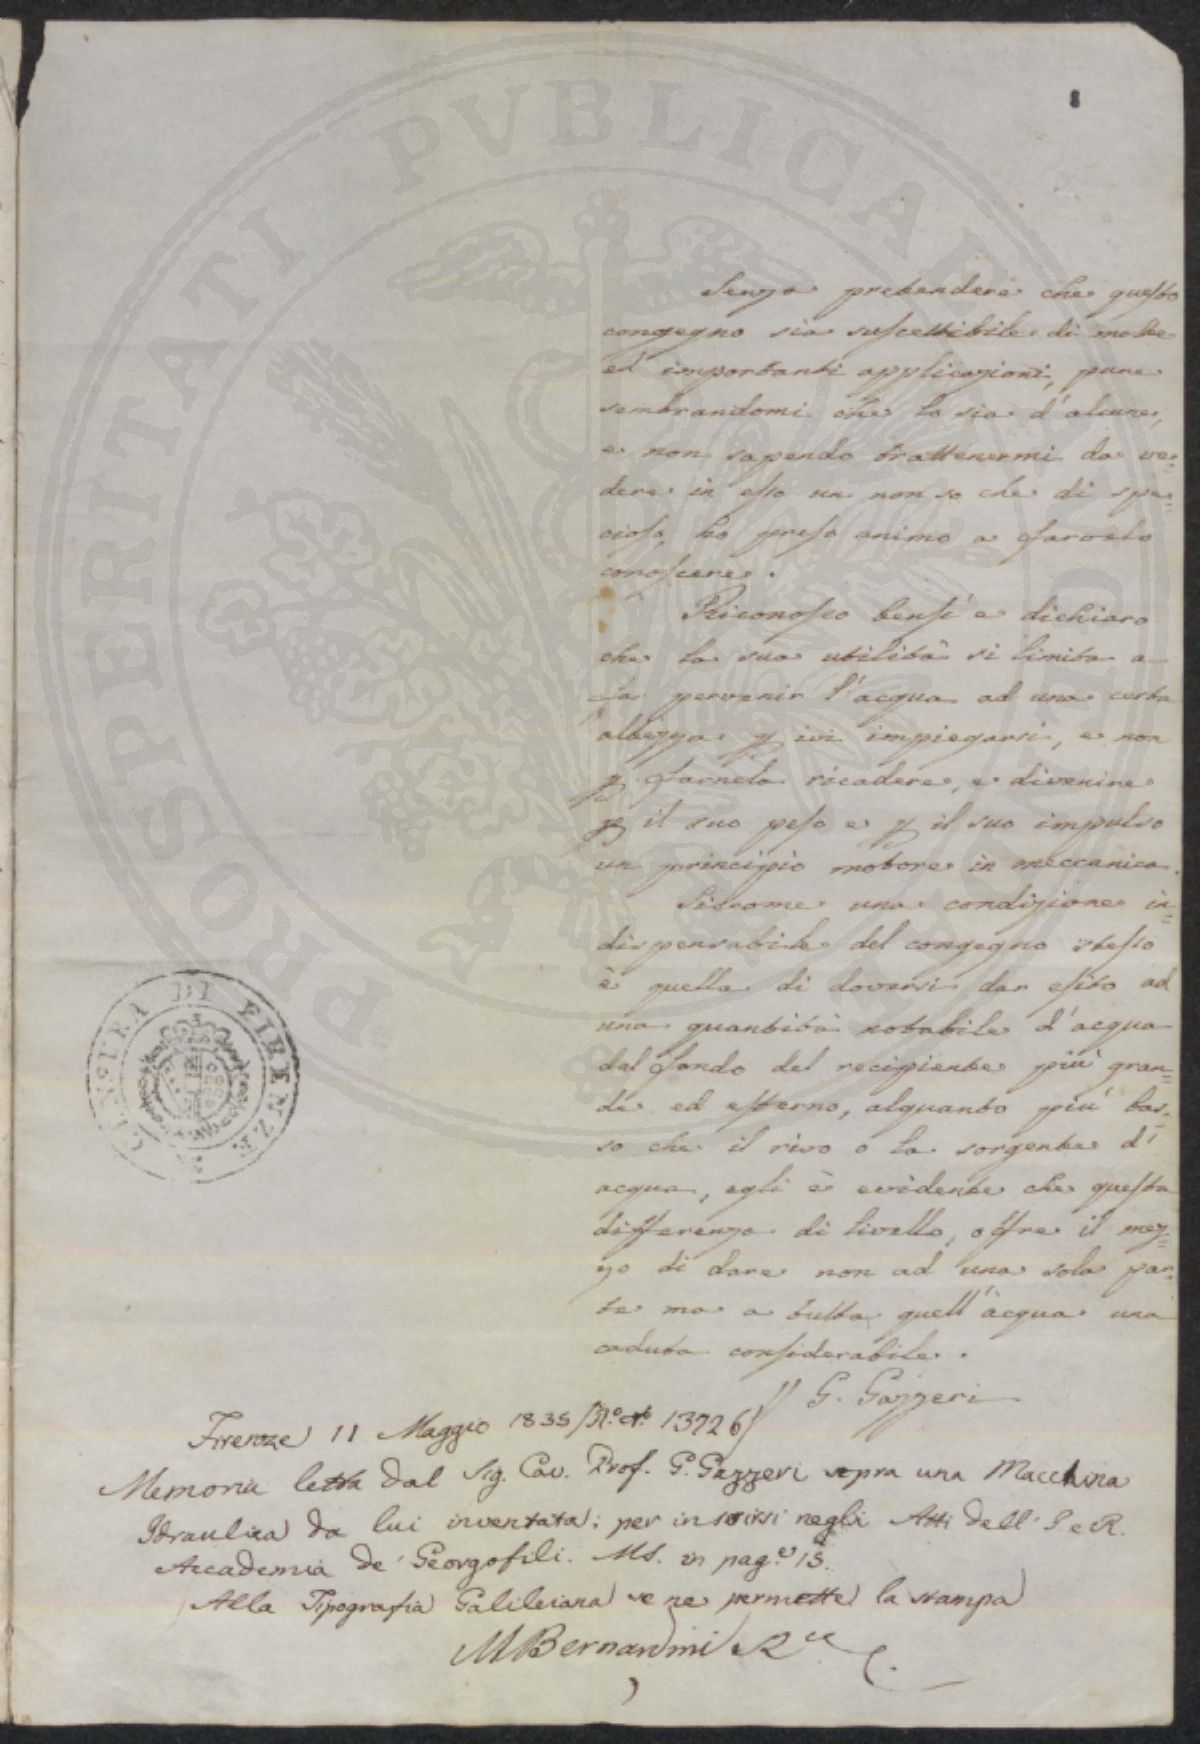 Senza pretendere che questo
congegno sia suscettibile di molte
ed importanti applicazioni, pure
sembrandomi che lo sia d'alcune,
e non sapendo trattenermi da ve=
dere in esso un non so che di spe=
cioso, ho preso animo a farvelo
conoscere.
Riconosco bensì e dichiaro
che la sua utilità si limita a
fa pervenir l'acqua ad una certa
altezza p ivi impiegarsi, e non
p farnela ricadere, e divenire
p il suo peso e p il suo impulso
un principio motore in meccanica.
Siccome una condizione in=
dispensabile del congegno stesso
è quella di doversi dar esito ad
una quantità notabile d'acqua
dal fondo del recipiente più gran=
de ed esterno, alquanto più bas=
so che il rivo o la sorgente d'
acqua, egli è evidente che questa
differenza di livello, offre il mez=
zo di dare non ad una sola par=
te ma a tutta quell'acqua una
caduta considerabile.
G. Gazzeri
Firenze 11 Maggio 1835 / N.º 13726
Memoria letta dal Sig. Cav. Prof. G. Gazzeri sopra una Macchina
Idraulica da lui inventata; per inserirsi negli Atti dell' I e R.
Accademia de' Georgofili. MS. in pag.e 15.
Alla Tipografia Galileiana se ne permette la stampa
M Bernardini R.re
CENSURA DI FIRENZE
PROSPERITATI PVBLICAE